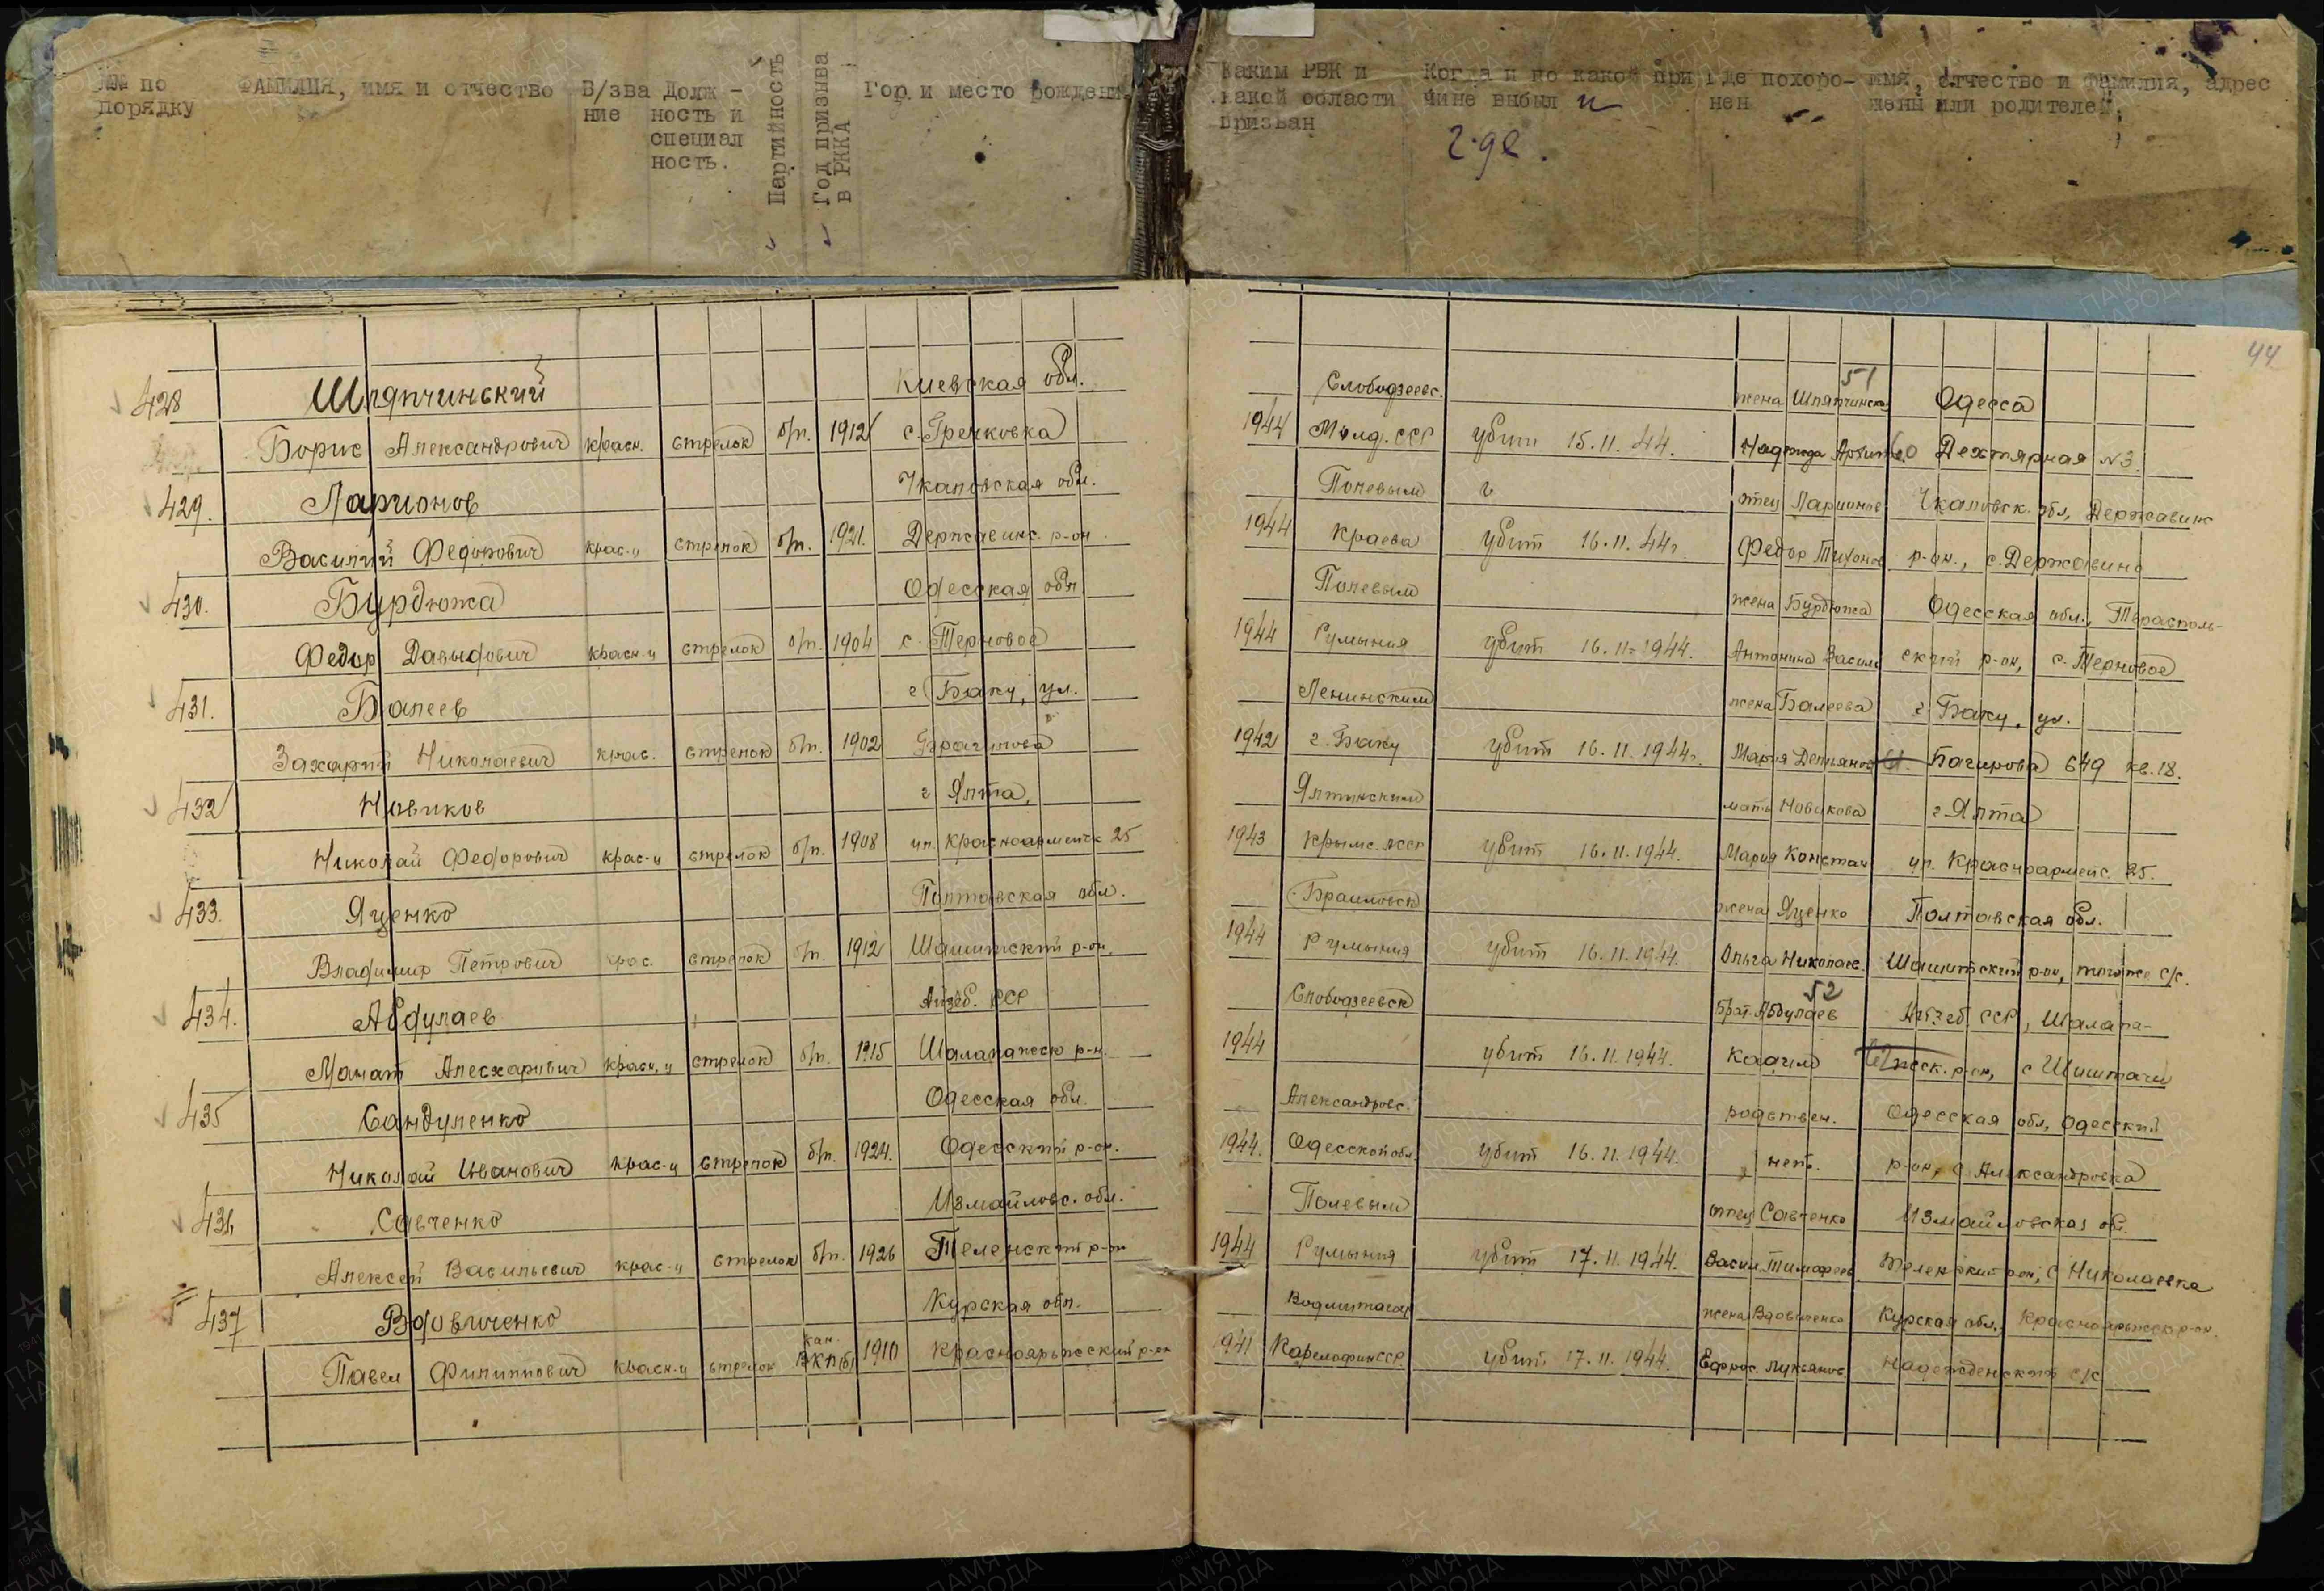 №№ по порядку
ФАМИЛИЯ, имя и отчество
В/зва ние
Долж - ность и специал ность.
Партийность
Год призыва в РККА
Гор. и место рождени
Каким РВК и какой области призван
Когда и по какой при чине выбыл и где.
Где похоро- нен
имя, отчество и фамилия, адрес жены или родителей;
44
428 Шляпчинський Киевская обл. Слободзеевс. жена Шляпчинска 51 Одесса
Борис Александрович красн. стрелок б/п. 1912 с. Гренковка 1944 Молд. ССР убит 15.11.44. Надежда Дехтярная №3.
429. Ларионов Чкаловская обл. Полевым отец Ларионов Чкаловск. обл, Державинс
Василий Федорович крас-ц стрелок б/п. 1921. Державинс. р-он 1944 Краева убит 16.11.44г Федор Тихонов р-он., с. Державино
430. Бурдюжа Одесская обл Полевым жена Бурдюжа Одесская обл., Тирасполь-
Федор Давыдович красн-ц стрелок б/п. 1904 с. Терновое 1944 Румыния убит 16.11.1944. Антонина Васил ский р-он, с. Терновое
431. Балеев г. Баку, ул. Ленинским жена Балеева г. Баку, ул.
Захарий Николаевич крас. стрелок б/п. 1902 1942 г. Баку убит 16.11.1944г. Мария Демьянов Багирова 649 кв. 18.
432 Новиков г Ялта, Ялтинским мать Новикова г Ялта
Николай Федорович крас-ц стрелок б/п. 1908 ул. Красноармейск 25 1943 Крымс. АССР убит 16.11.1944. Мария Констан ул. Красноармейс. 25.
433. Яценко Полтавская обл. Браиловск жена Яценко Полтавская обл.
Владимир Петрович крас. стрелок б/п. 1912 Шашитский р-он, 1944 Румыния убит 16.11.1944. Ольга Николаев. Шашитский р-он, того же с/с.
434. Абдулаев Азеб. ССР Слободзеевск брат Абдулаев 52 ССР, Шалапа-
Манат Алесхарович красн, ц стрелок б/п. 1915 Шалапапеск р-н. 1944 убит 16.11.1944. Каагил песк. р-он, с Шиштаги
435 Сандуленко Одесская обл. Александровс. родствен. Одесская обл, Одесский
Николай Иванович крас-ц стрелок б/п. 1924. Одесский р-он. 1944. Одесской обл убит 16.11.1944. нет. р-он, с. Александровка
436 Савченко Измайловс. обл. Полевым отец Савченко Измайловская обл.
Алексей Васильевич крас-ц стрелок б/п. 1926 Теленский р-он 1944 Румыния убит 17.11.1944. Васил. Тимофеев Теленский р-он, с Николаевка
437 Вдовиченко Курская обл. жена Вдовиченко Курская обл., Краснояружск р-он.
Павел Филиппович красн-ц стрелок кан. ВКП(б) 1910 Краснояружский р-он 1941 КарелофинССР убит 17.11.1944. Ефрос. Лукьянов Надежденский с/с